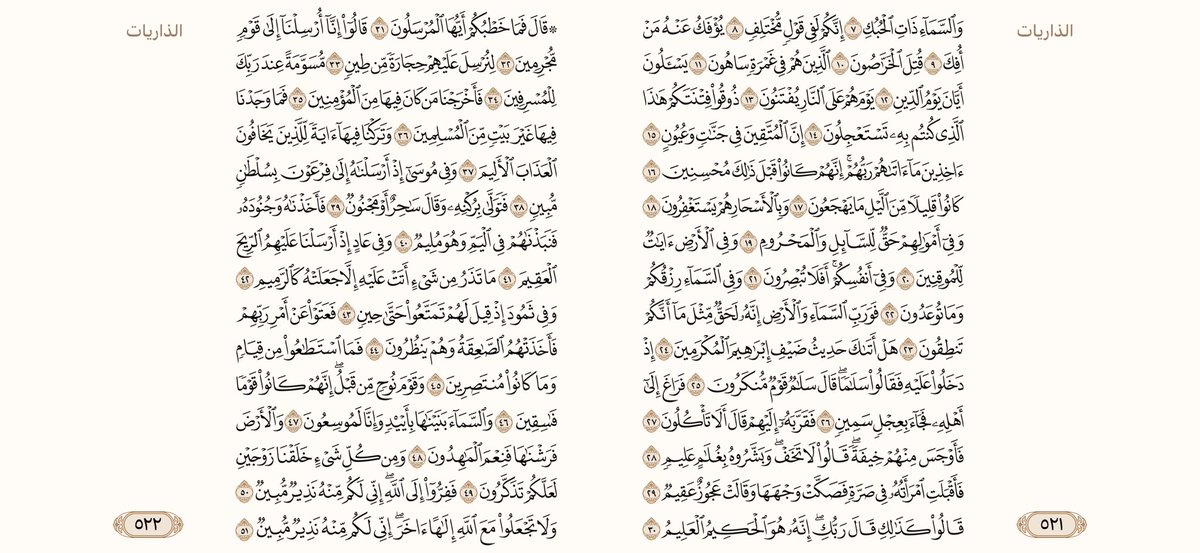 الذاريات
وَٱلسَّمَآءِ ذَاتِ ٱلۡحُبُكِ ٧ إِنَّكُمۡ لَفِي قَوۡلٖ مُّخۡتَلِفٖ ٨ يُؤۡفَكُ عَنۡهُ مَنۡ
أُفِكَ ٩ قُتِلَ ٱلۡخَرَّٰصُونَ ١٠ ٱلَّذِينَ هُمۡ فِي غَمۡرَةٖ سَاهُونَ ١١ يَسۡـَٔلُونَ
أَيَّانَ يَوۡمُ ٱلدِّينِ ١٢ يَوۡمَ هُمۡ عَلَى ٱلنَّارِ يُفۡتَنُونَ ١٣ ذُوقُواْ فِتۡنَتَكُمۡ هَٰذَا
ٱلَّذِي كُنتُم بِهِۦ تَسۡتَعۡجِلُونَ ١٤ إِنَّ ٱلۡمُتَّقِينَ فِي جَنَّٰتٖ وَعُيُونٍ ١٥
ءَاخِذِينَ مَآ ءَاتَىٰهُمۡ رَبُّهُمۡۚ إِنَّهُمۡ كَانُواْ قَبۡلَ ذَٰلِكَ مُحۡسِنِينَ ١٦
كَانُواْ قَلِيلٗا مِّنَ ٱلَّيۡلِ مَا يَهۡجَعُونَ ١٧ وَبِٱلۡأَسۡحَارِ هُمۡ يَسۡتَغۡفِرُونَ ١٨
وَفِيٓ أَمۡوَٰلِهِمۡ حَقّٞ لِّلسَّآئِلِ وَٱلۡمَحۡرُومِ ١٩ وَفِي ٱلۡأَرۡضِ ءَايَٰتٞ
لِّلۡمُوقِنِينَ ٢٠ وَفِيٓ أَنفُسِكُمۡۚ أَفَلَا تُبۡصِرُونَ ٢١ وَفِي ٱلسَّمَآءِ رِزۡقُكُمۡ
وَمَا تُوعَدُونَ ٢٢ فَوَرَبِّ ٱلسَّمَآءِ وَٱلۡأَرۡضِ إِنَّهُۥ لَحَقّٞ مِّثۡلَ مَآ أَنَّكُمۡ
تَنطِقُونَ ٢٣ هَلۡ أَتَىٰكَ حَدِيثُ ضَيۡفِ إِبۡرَٰهِيمَ ٱلۡمُكۡرَمِينَ ٢٤ إِذۡ
دَخَلُواْ عَلَيۡهِ فَقَالُواْ سَلَٰمٗاۖ قَالَ سَلَٰمٞ قَوۡمٞ مُّنكَرُونَ ٢٥ فَرَاغَ إِلَىٰٓ
أَهۡلِهِۦ فَجَآءَ بِعِجۡلٖ سَمِينٖ ٢٦ فَقَرَّبَهُۥٓ إِلَيۡهِمۡ قَالَ أَلَا تَأۡكُلُونَ ٢٧
فَأَوۡجَسَ مِنۡهُمۡ خِيفَةٗۖ قَالُواْ لَا تَخَفۡۖ وَبَشَّرُوهُ بِغُلَٰمٍ عَلِيمٖ ٢٨
فَأَقۡبَلَتِ ٱمۡرَأَتُهُۥ فِي صَرَّةٖ فَصَكَّتۡ وَجۡهَهَا وَقَالَتۡ عَجُوزٌ عَقِيمٞ ٢٩
قَالُواْ كَذَٰلِكِ قَالَ رَبُّكِۖ إِنَّهُۥ هُوَ ٱلۡحَكِيمُ ٱلۡعَلِيمُ ٣٠
٥٢١
الذاريات
۞ قَالَ فَمَا خَطۡبُكُمۡ أَيُّهَا ٱلۡمُرۡسَلُونَ ٣١ قَالُوٓاْ إِنَّآ أُرۡسِلۡنَآ إِلَىٰ قَوۡمٖ
مُّجۡرِمِينَ ٣٢ لِنُرۡسِلَ عَلَيۡهِمۡ حِجَارَةٗ مِّن طِينٖ ٣٣ مُّسَوَّمَةً عِندَ رَبِّكَ
لِلۡمُسۡرِفِينَ ٣٤ فَأَخۡرَجۡنَا مَن كَانَ فِيهَا مِنَ ٱلۡمُؤۡمِنِينَ ٣٥ فَمَا وَجَدۡنَا
فِيهَا غَيۡرَ بَيۡتٖ مِّنَ ٱلۡمُسۡلِمِينَ ٣٦ وَتَرَكۡنَا فِيهَآ ءَايَةٗ لِّلَّذِينَ يَخَافُونَ
ٱلۡعَذَابَ ٱلۡأَلِيمَ ٣٧ وَفِي مُوسَىٰٓ إِذۡ أَرۡسَلۡنَٰهُ إِلَىٰ فِرۡعَوۡنَ بِسُلۡطَٰنٖ
مُّبِينٖ ٣٨ فَتَوَلَّىٰ بِرُكۡنِهِۦ وَقَالَ سَٰحِرٌ أَوۡ مَجۡنُونٞ ٣٩ فَأَخَذۡنَٰهُ وَجُنُودَهُۥ
فَنَبَذۡنَٰهُمۡ فِي ٱلۡيَمِّ وَهُوَ مُلِيمٞ ٤٠ وَفِي عَادٍ إِذۡ أَرۡسَلۡنَا عَلَيۡهِمُ ٱلرِّيحَ
ٱلۡعَقِيمَ ٤١ مَا تَذَرُ مِن شَيۡءٍ أَتَتۡ عَلَيۡهِ إِلَّا جَعَلَتۡهُ كَٱلرَّمِيمِ ٤٢
وَفِي ثَمُودَ إِذۡ قِيلَ لَهُمۡ تَمَتَّعُواْ حَتَّىٰ حِينٖ ٤٣ فَعَتَوۡاْ عَنۡ أَمۡرِ رَبِّهِمۡ
فَأَخَذَتۡهُمُ ٱلصَّٰعِقَةُ وَهُمۡ يَنظُرُونَ ٤٤ فَمَا ٱسۡتَطَٰعُواْ مِن قِيَامٖ
وَمَا كَانُواْ مُنتَصِرِينَ ٤٥ وَقَوۡمَ نُوحٖ مِّن قَبۡلُۖ إِنَّهُمۡ كَانُواْ قَوۡمٗا
فَٰسِقِينَ ٤٦ وَٱلسَّمَآءَ بَنَيۡنَٰهَا بِأَيۡيْدٖ وَإِنَّا لَمُوسِعُونَ ٤٧ وَٱلۡأَرۡضَ
فَرَشۡنَٰهَا فَنِعۡمَ ٱلۡمَٰهِدُونَ ٤٨ وَمِن كُلِّ شَيۡءٍ خَلَقۡنَا زَوۡجَيۡنِ
لَعَلَّكُمۡ تَذَكَّرُونَ ٤٩ فَفِرُّوٓاْ إِلَى ٱللَّهِۖ إِنِّي لَكُم مِّنۡهُ نَذِيرٞ مُّبِينٞ ٥٠
وَلَا تَجۡعَلُواْ مَعَ ٱللَّهِ إِلَٰهًا ءَاخَرَۖ إِنِّي لَكُم مِّنۡهُ نَذِيرٞ مُّبِينٞ ٥١
٥٢٢